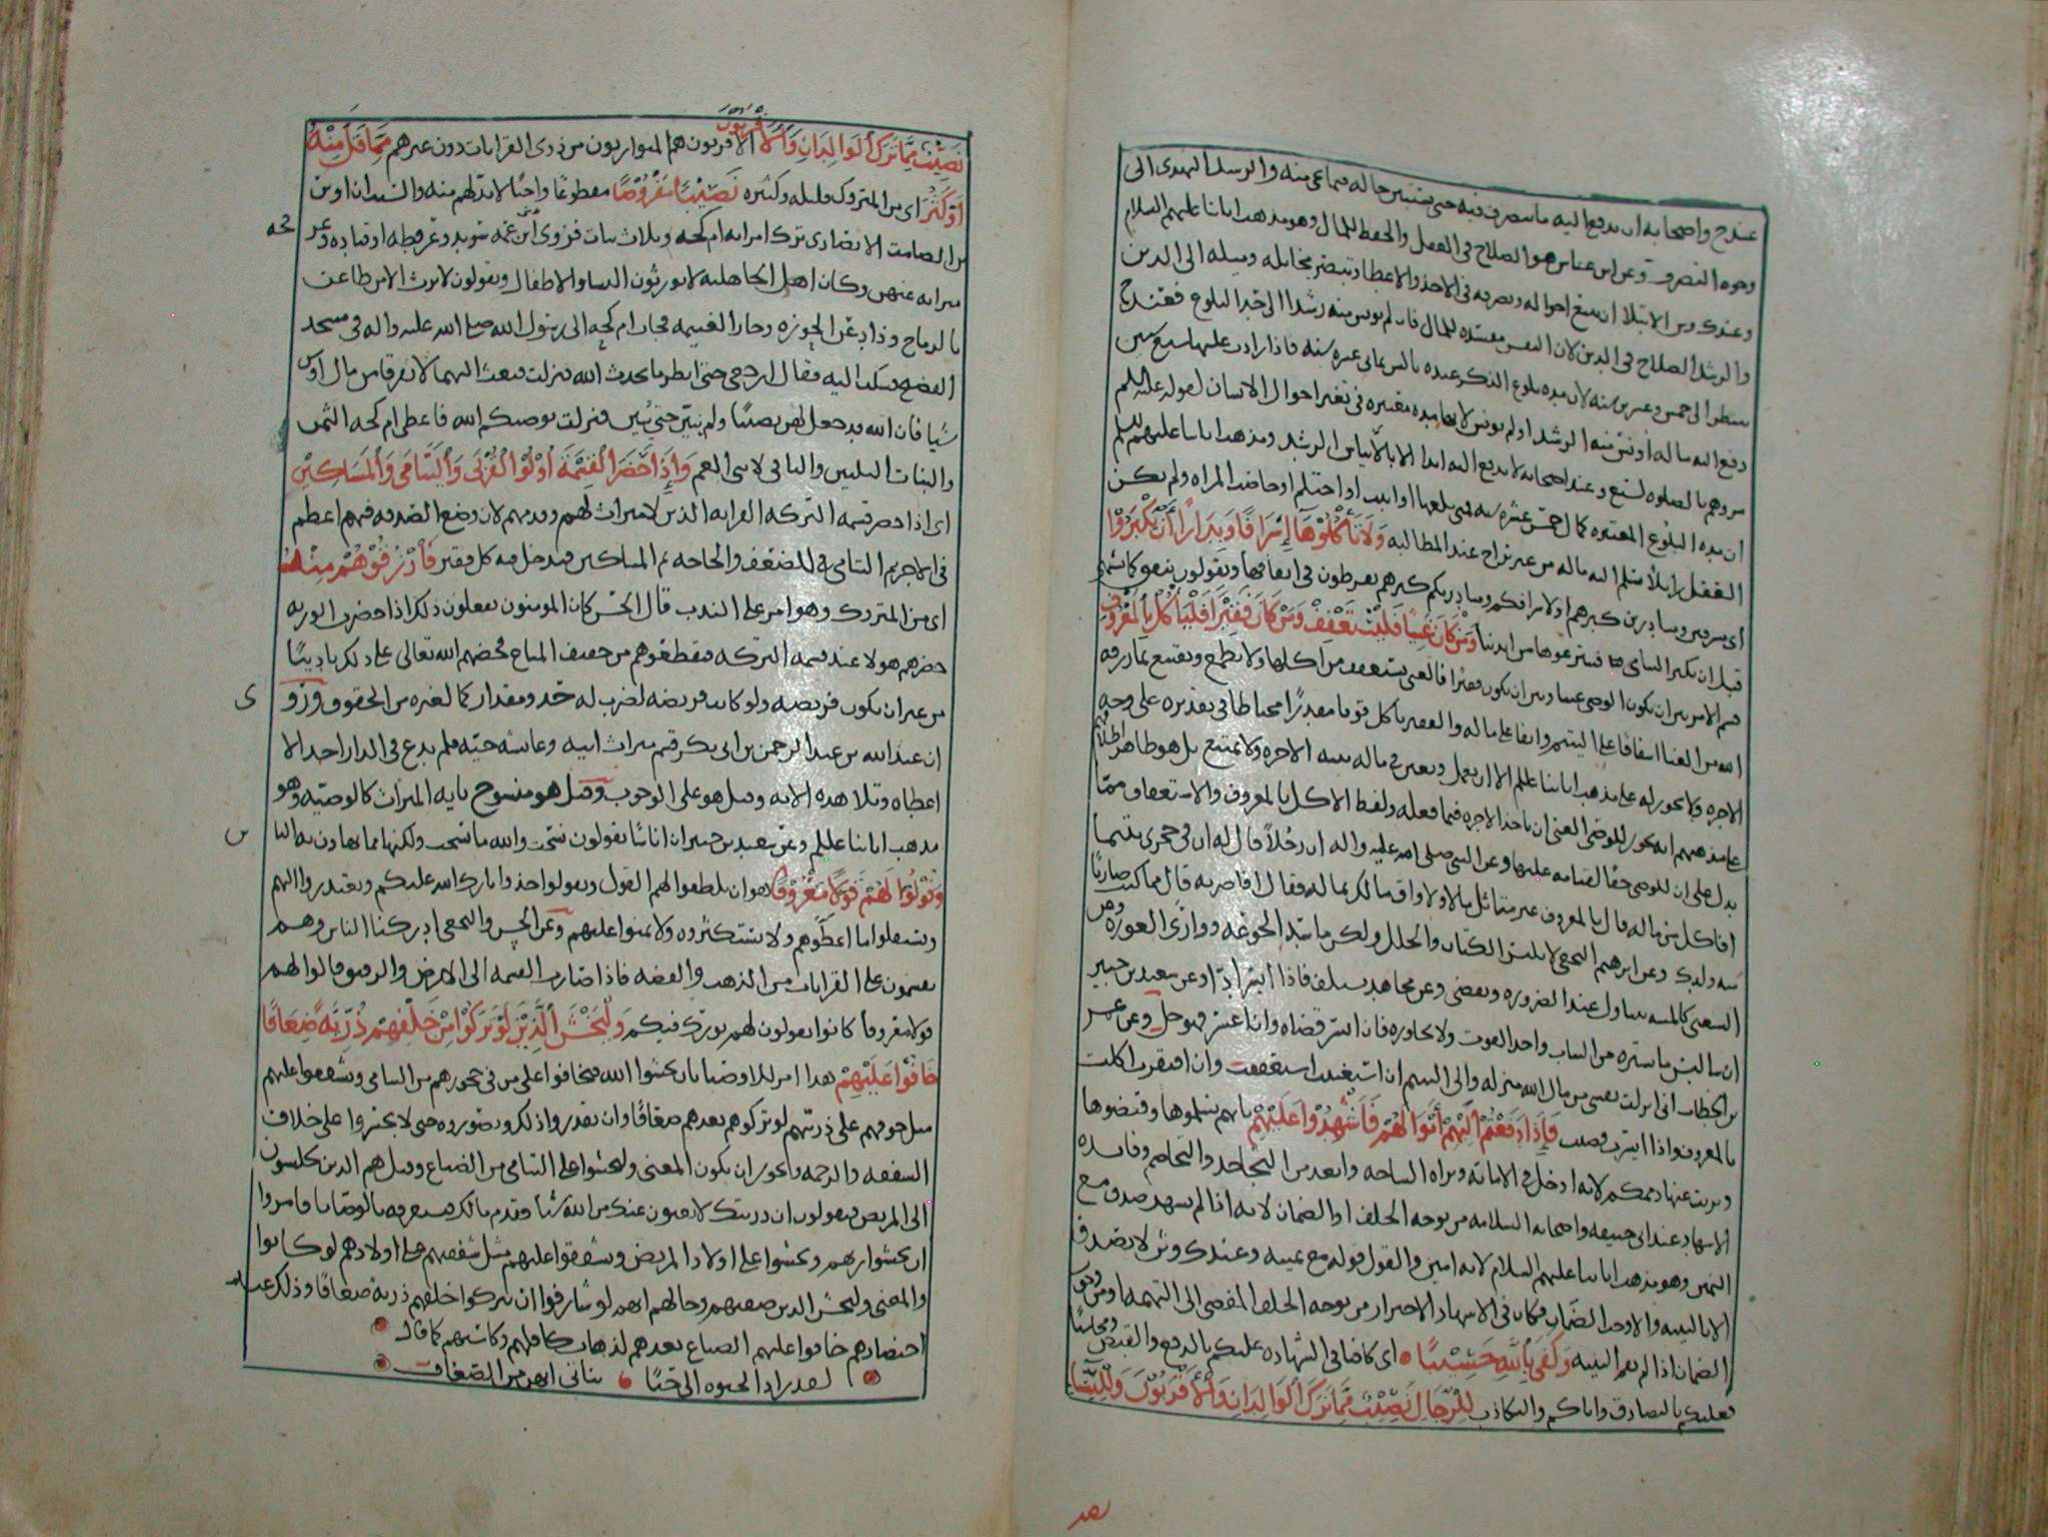 عند ح واصحابه ان يدفع اليه ما يتصرف فيه حتى يستبين حاله فيما يجي منه والرشد التهدى الى
وجوه التصرف وعن ابن عباس هو الصلاح في العقل والحفظ للمال وهو مذهب ابائنا عليهم السلام
وعند ك وش الابتلا ان يتتبع احواله وتصرفه في الاخذ والاعطا ويتبصر مخايله وميله الى الدين
والرشد الصلاح في الدين لان الفسق مفسدة للمال فان لم يونس منه رشدا الى حد البلوغ فعند ح
ينتظر الى خمس وعشرين سنه لان مدة بلوغ الذكر عنده بالسن ثماني عشره سنه فاذا زادت عليها سبع سنين
دفع اليه ماله اونس منه الرشد او لم يونس لانها مدة معتبره في تغير احوال الانسان لقوله عليه السلم
مروهم بالصلوه لسبع وعند اصحابه لا يدفع اليه ابدا الا بايناس الرشد ومذهب ابائنا عليهم السلم
ان مدة البلوغ المعتبره كمال خمس عشره سنه فمتى بلغها او انبت او احتلم او حاضت المراه ولم يكن
العقل زايلا سلم اليه ماله من غير تراخ عند المطالبه وَلَا تَأْكُلُوهَا إِسْرَافًا وَبِدَارًا أَنْ يَكْبَرُوا
اى مسرفين ومبادرين كبرهم او لاسرافكم ومبادرتكم كبرهم تفرطون في انفاقها وتقولون ننفق كما نشتهى
قبل ان يكبر اليتامى فينتزعوها من ايدينا وَمَنْ كَانَ غَنِيًّا فَلْيَسْتَعْفِفْ وَمَنْ كَانَ فَقِيرًا فَلْيَأْكُلْ بِالْمَعْرُوفِ
قسم الامر بين ان يكون الوصي غنيا وبين ان يكون فقيرا فالغنى يستعفف من اكلها ولا يطمع ويقتنع بما رزقه
الله من الغنا اشفاقا على اليتيم وابقا على ماله والفقير ياكل قوتا مقدرًا محتاطا في تقديره على وجه
الاجره ولا يجوز له على مذهب ابائنا عليلم الا ان يعمل ويعين في ماله بنيه الاجره ولا يمتنع بل هو ظاهر اطلاقهم
على مذهبهم انه يجوز للوصي الغنى ان ياخذ الاجره فيما فعله ولفظ الاكل بالمعروف والاستعفاف مما
يدل على ان للوصي حقا لقيامه عليها وعن النبي صلى الله عليه واله ان رجلاً قال له ان في حجرى يتيما
افاكل من ماله قال بالمعروف غير متاثل مالا ولا واق مالك بماله فقال افاضربه قال مما كنت ضاربًا
منه ولدك وعن ابرهيم النخعي لا يلبس الكتان والحلل ولكن ما سد الجوعه ووارى العوره وعن
الشعبى كالميته يتناول عند الضروره ويقضى وعن مجاهد يستسلف فاذا ايسر ادّا وعن سعيد بن جبير
ان يلبس ما ستره من الثياب واخذ القوت ولا يجاوزه فان ايسر قضاه وان اعسر فهو حل وعن عمر
بن الخطاب انى انزلت نفسي من مال الله منزله والى اليتيم ان استغنيت استعففت وان افتقرت اكلت
بالمعروف واذا ايسرت قضيت فَإِذَا دَفَعْتُمْ إِلَيْهِمْ أَمْوَالَهُمْ فَأَشْهِدُوا عَلَيْهِمْ بانهم تسلموها وقبضوها
وبريت عنها ذممكم لانه ادخل في الامانه وبراه الساحه وابعد من التجاحد والتخاصم وفايده
الاشهاد عند ابي حنيفه واصحابه السلامه من توجه الحلف او الضمان لانه اذا لم يشهد صدق مع
اليمين وهو مذهب ابائنا عليهم السلام لانه امين والقول قوله مع يمينه وعند ك وش لا يصدق
الا بالبينه والا وجب الضمان فكان في الاشهاد الاحتراز من توجه الحلف المفضي الى التهمه او من وجوب
الضمان اذا لم يقم البينه وَكَفَى بِاللَّهِ حَسِيبًا اى كافيا في الشهاده عليكم بالدفع والقبض ومحاسبًا
فعليكم بالتصادق واياكم والتكاذب لِلرِّجَالِ نَصِيبٌ مِمَّا تَرَكَ الْوَالِدَانِ وَالْأَقْرَبُونَ وَلِلنِّسَاءِ
نَصِيبٌ مِمَّا تَرَكَ الْوَالِدَانِ وَالْأَقْرَبُونَ الاقربون هم المتوارثون من ذوى القرابات دون غيرهم مِمَّا قَلَّ مِنْهُ
أَوْ كَثُرَ اى من المتروك قليله وكثيره نَصِيبًا مَفْرُوضًا مقطوعًا واجبًا لا بد لهم منه والسبب ان اوس
بن الصامت الانصارى ترك امراته ام كحه وثلاث بنات فزوى ابنى عمه سويد وعرفطه او قتاده وعر
ميراثه عنهن وكان اهل الجاهليه لا يورثون النسا والاطفال ويقولون لا يرث الا من طاعن
بالرماح وذاد عن الحوزه وحاز الغنيمه فجات ام كحه الى رسول الله صلى الله عليه واله في مسجد
الفضيخ فشكت اليه فقال ارجعى حتى انظر ما يحدث الله فنزلت فبعث اليهما لا تفرقا من مال اوس
شيا فان الله قد جعل لهن نصيبا ولم يبين حتى يبين فنزلت يوصيكم الله فاعطى ام كحه الثمن
والبنات الثلثين والباقى لابني العم وَإِذَا حَضَرَ الْقِسْمَةَ أُولُوا الْقُرْبَى وَالْيَتَامَى وَالْمَسَاكِينُ
اى اذا حضر قسمه التركه القرابه الذين لا ميراث لهم وقدمهم لان وضع الصدقه فيهم اعظم
في الاجر ثم اليتامى للضعف والحاجه ثم المساكين فيدخل فيه كل فقير فَارْزُقُوهُمْ مِنْهُ
اى من المتروك وهو امر على الندب قال الحسن كان المومنون يفعلون ذلك اذا حضرت الورثه
حضرهم هولا عند قسمه التركه فيقطعوهم من خفيف المتاع فحضهم الله تعالى على ذلك تاديبًا
من غير ان يكون فريضه ولو كانت فريضه لضرب له حد ومقدار كما لغيره من الحقوق وروى
ان عبد الله بن عبد الرحمن بن ابى بكر قسم ميراث ابيه وعائشه حيّه فلم يدع في الدار احد الا
اعطاه وتلا هذه الايه وقيل هو على الوجوب وقيل هو منسوخ بايه الميراث كالوصيه وهو
مذهب ابائنا عليلم وعن سعيد بن جبير ان اناسًا يقولون نسخت والله ما نسخت ولكنها مما تهاون به الناس
وَقُولُوا لَهُمْ قَوْلًا مَعْرُوفًا هو ان يلطفوا لهم القول ويقولوا خذوا بارك الله عليكم ويعتذروا اليهم
ويستقلوا ما اعطوهم ولا يستكثروه ولا يمنوا عليهم وعن الحسن والنخعي ادركنا الناس وهم
يقسمون على القرابات من الذهب والفضه فاذا صارت القسمه الى الارض والرقيق قالوا لهم
قولا معروفا كانوا يقولون لهم بورك فيكم وَلْيَخْشَ الَّذِينَ لَوْ تَرَكُوا مِنْ خَلْفِهِمْ ذُرِّيَّةً ضِعَافًا
خَافُوا عَلَيْهِمْ هذا امر للاوصيا بان يخشوا الله فيخافوا على من في حجورهم من اليتامى ويشفقوا عليهم
مثل خوفهم على ذريتهم لو تركوهم بعدهم ضعافًا وان يقدروا ذلك ويتصوروه حتى لا يجسروا على خلاف
الشفقه والرحمه ويجوز ان يكون المعنى وليخشوا على اليتامى من الضياع وقيل هم الذين يجلسون
الى المريض فيقولون ان ذريتك لا يغنون عنك من الله شيا فقدم مالك فيستغرقه بالوصايا فامروا
ان يخشوا ربهم ويخشوا على اولاد المريض ويشفقوا عليهم مثل شفقتهم على اولادهم لو كانوا
والمعنى وليخش الذين صفتهم وحالهم انهم لو شارفوا ان يتركوا خلفهم ذرية ضعافًا وذلك عند
احتضارهم خافوا عليهم الضياع بعدهم لذهاب كافلهم وكاسبهم كما قال
لقد زاد الحيوه الى حبًا بناتى انهن من الضعاف